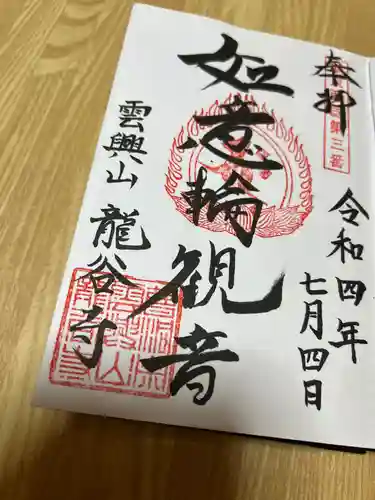 奉拝
第三番
令和四年
七月四日
如意輪観音
雲興山
龍谷寺